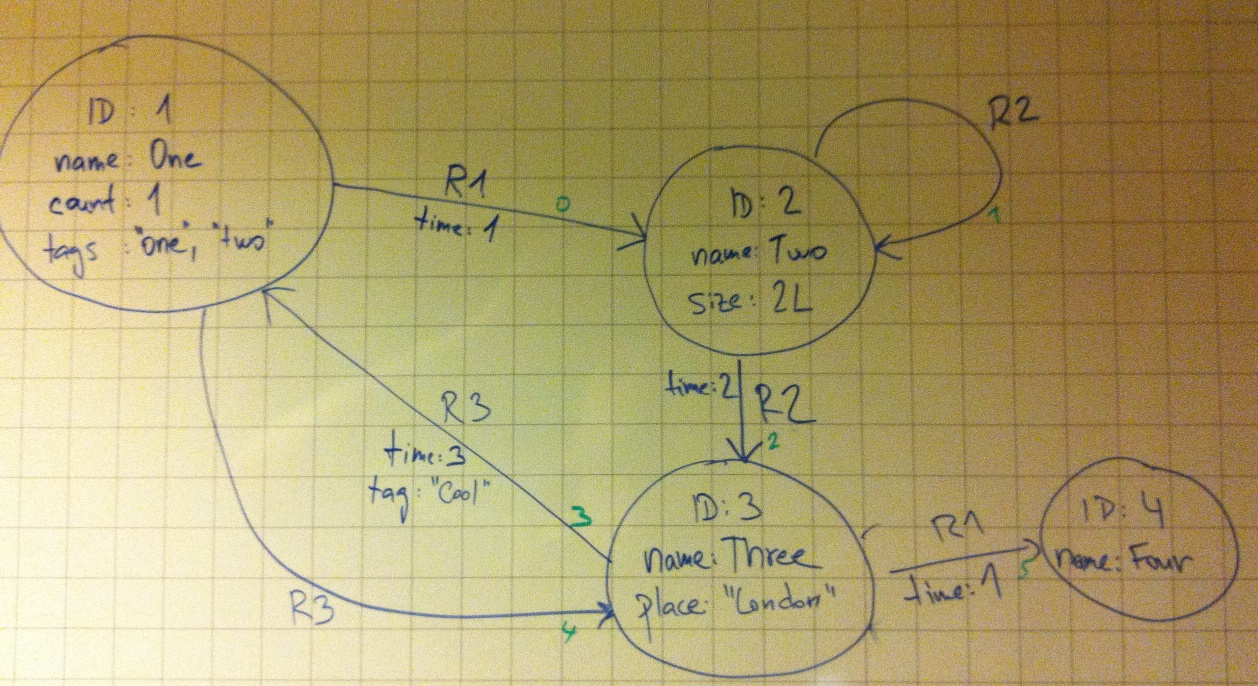 ID: 1
name: One
count: 1
tags: "one", "two"
R1
time: 1
0
ID: 2
name: Two
size: 2L
R2
1
time: 2
R2
2
R3
time: 3
tag: "Cool"
3
ID: 3
name: Three
place: "London"
R3
4
R1
time: 1
5
ID: 4
name: Four